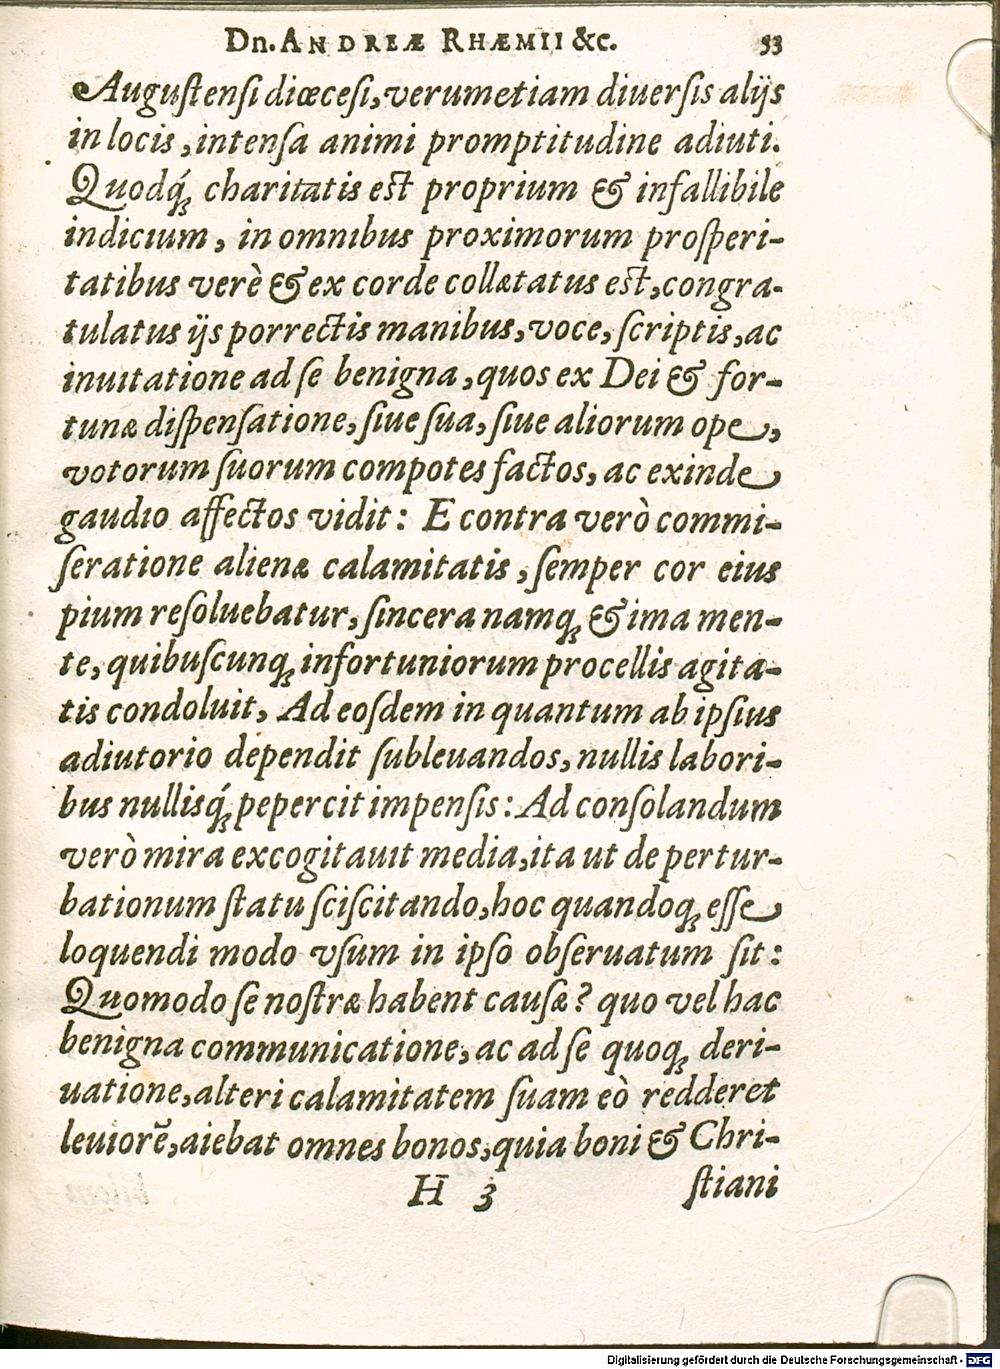 Dn. ANDREÆ RHÆMII &c. 53
Augustensi diœcesi, verumetiam diuersis alijs
in locis, intensa animi promptitudine adiuti.
Quodq́ꝫ charitatis est proprium & infallibile
indicium, in omnibus proximorum prosperi-
tatibus verè & ex corde collætatus est, congra-
tulatus ijs porrectis manibus, voce, scriptis, ac
inuitatione ad se benigna, quos ex Dei & for-
tunæ dispensatione, siue sua, siue aliorum ope,
votorum suorum compotes factos, ac exinde
gaudio affectos vidit: E contra verò commi-
seratione alienæ calamitatis, semper cor eius
pium resoluebatur, sincera namqꝫ & ima men-
te, quibuscunqꝫ infortuniorum procellis agita-
tis condoluit, Ad eosdem in quantum ab ipsius
adiutorio dependit subleuandos, nullis labori-
bus nullisq́ꝫ pepercit impensis: Ad consolandum
verò mira excogitauit media, ita ut de pertur-
bationum statu sciscitando, hoc quandoqꝫ esse
loquendi modo vsum in ipso obseruatum sit:
Quomodo se nostræ habent causæ? quo vel hac
benigna communicatione, ac ad se quoqꝫ deri-
uatione, alteri calamitatem suam eò redderet
leuiorẽ, aiebat omnes bonos, quia boni & Chri-
H 3 stiani
Digitalisierung gefördert durch die Deutsche Forschungsgemeinschaft - DFG